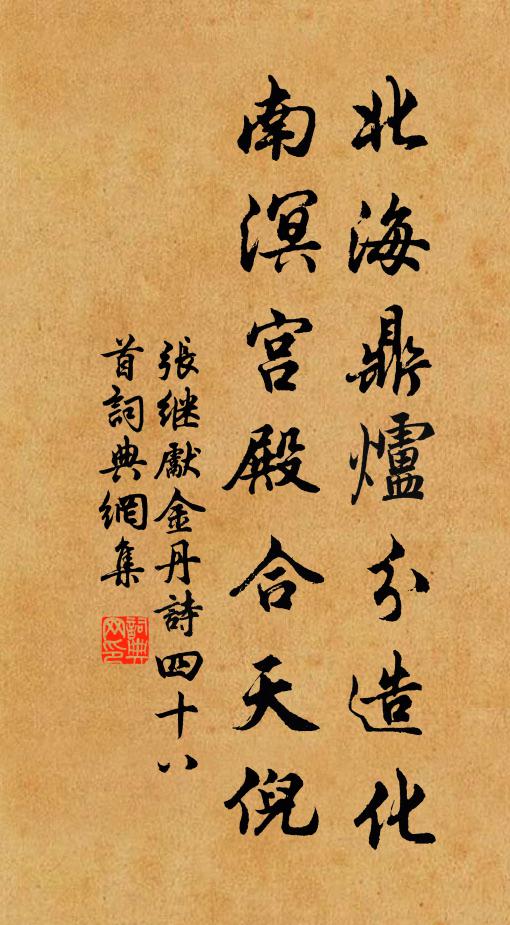 北海鼎爐分造化
南溟宮殿合天倪
張继獻金丹詩四十八
首詞典網集
詞典网印